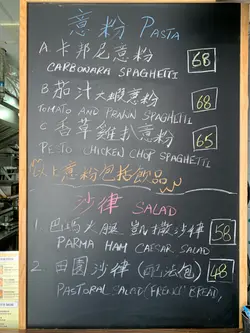 意粉 PASTA
A. 卡邦尼意粉 68
CARBONARA SPAGHETTI
B 茄汁大蝦意粉 68
TOMATO AND PRAWN SPAGHETTI
C 香草雞扒意粉 65
PESTO CHICKEN CHOP SPAGHETTI
以上意粉包括飲品
沙律 SALAD
1. 巴馬火腿 凱撒沙律 58
PARMA HAM CAESAR SALAD
2. 田園沙律 (配法包) 48
PASTORAL SALAD (FRENCH BREAD)